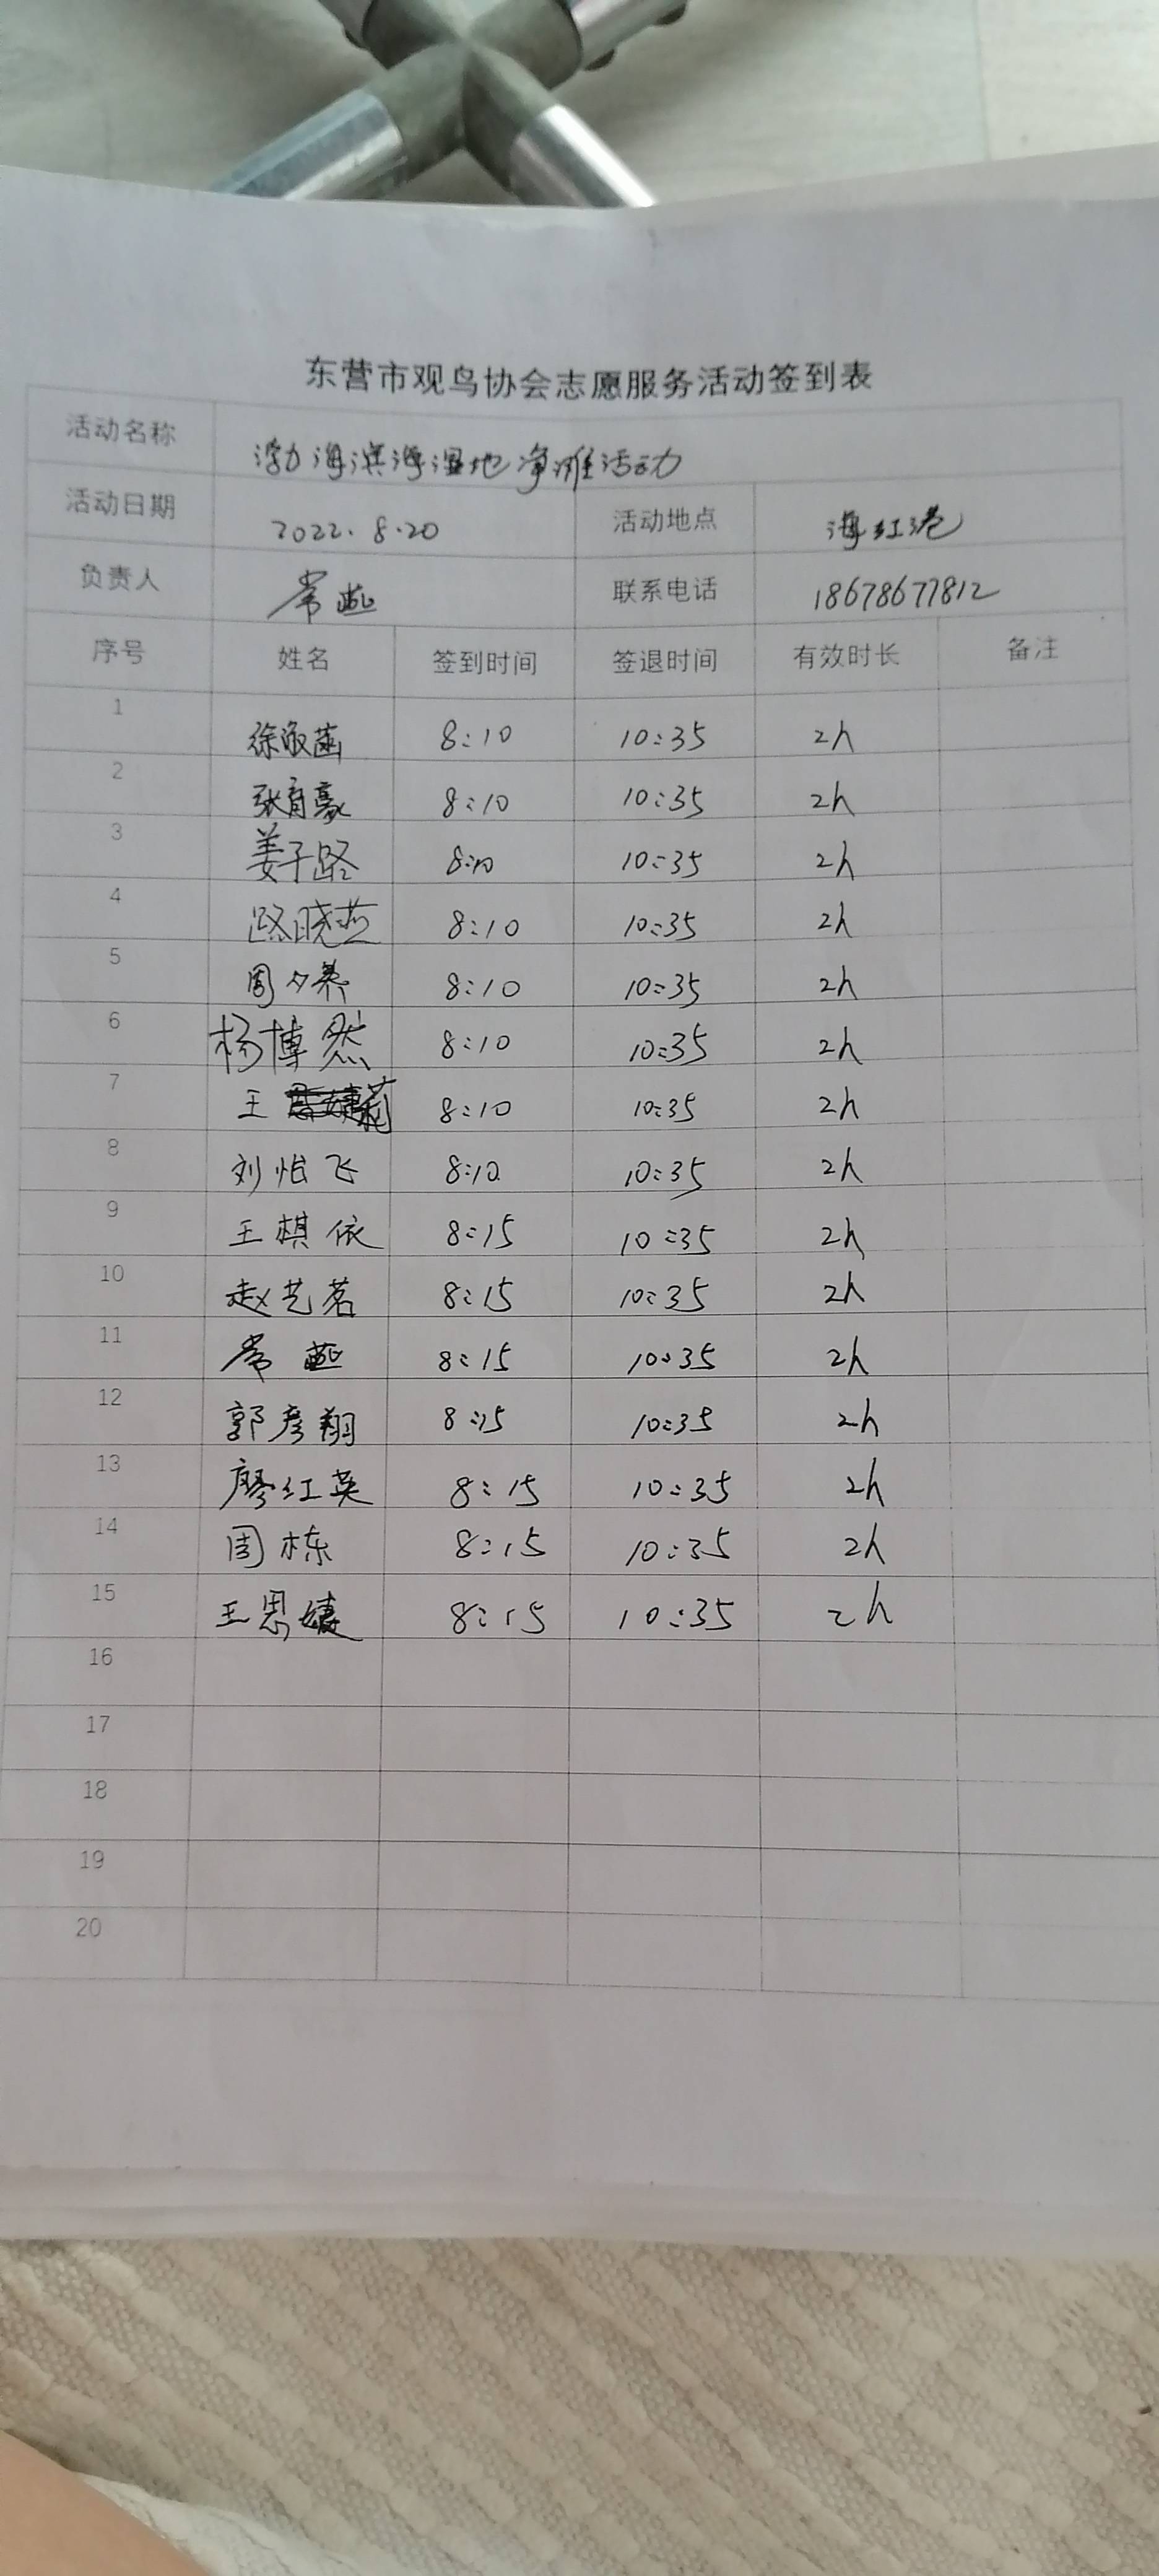 东营市观鸟协会志愿服务活动签到表
活动名称 渤海滨海湿地净滩活动
活动日期 2022.8.20 活动地点 海红港
负责人 常 联系电话 18678677812
序号 姓名 签到时间 签退时间 有效时长 备注
1 徐淑菡 8:10 10:35 2h
2 张育豪 8:10 10:35 2h
3 姜子路 8:10 10:35 2h
4 路晓燕 8:10 10:35 2h
5 周夕 8:10 10:35 2h
6 杨博然 8:10 10:35 2h
7 王莉 8:10 10:35 2h
8 刘怡飞 8:10 10:35 2h
9 王棋依 8:15 10:35 2h
10 赵艺茗 8:15 10:35 2h
11 常 8:15 10:35 2h
12 郭彦翔 8:15 10:35 2h
13 廖红英 8:15 10:35 2h
14 周栋 8:15 10:35 2h
15 王思婕 8:15 10:35 2h
16
17
18
19
20